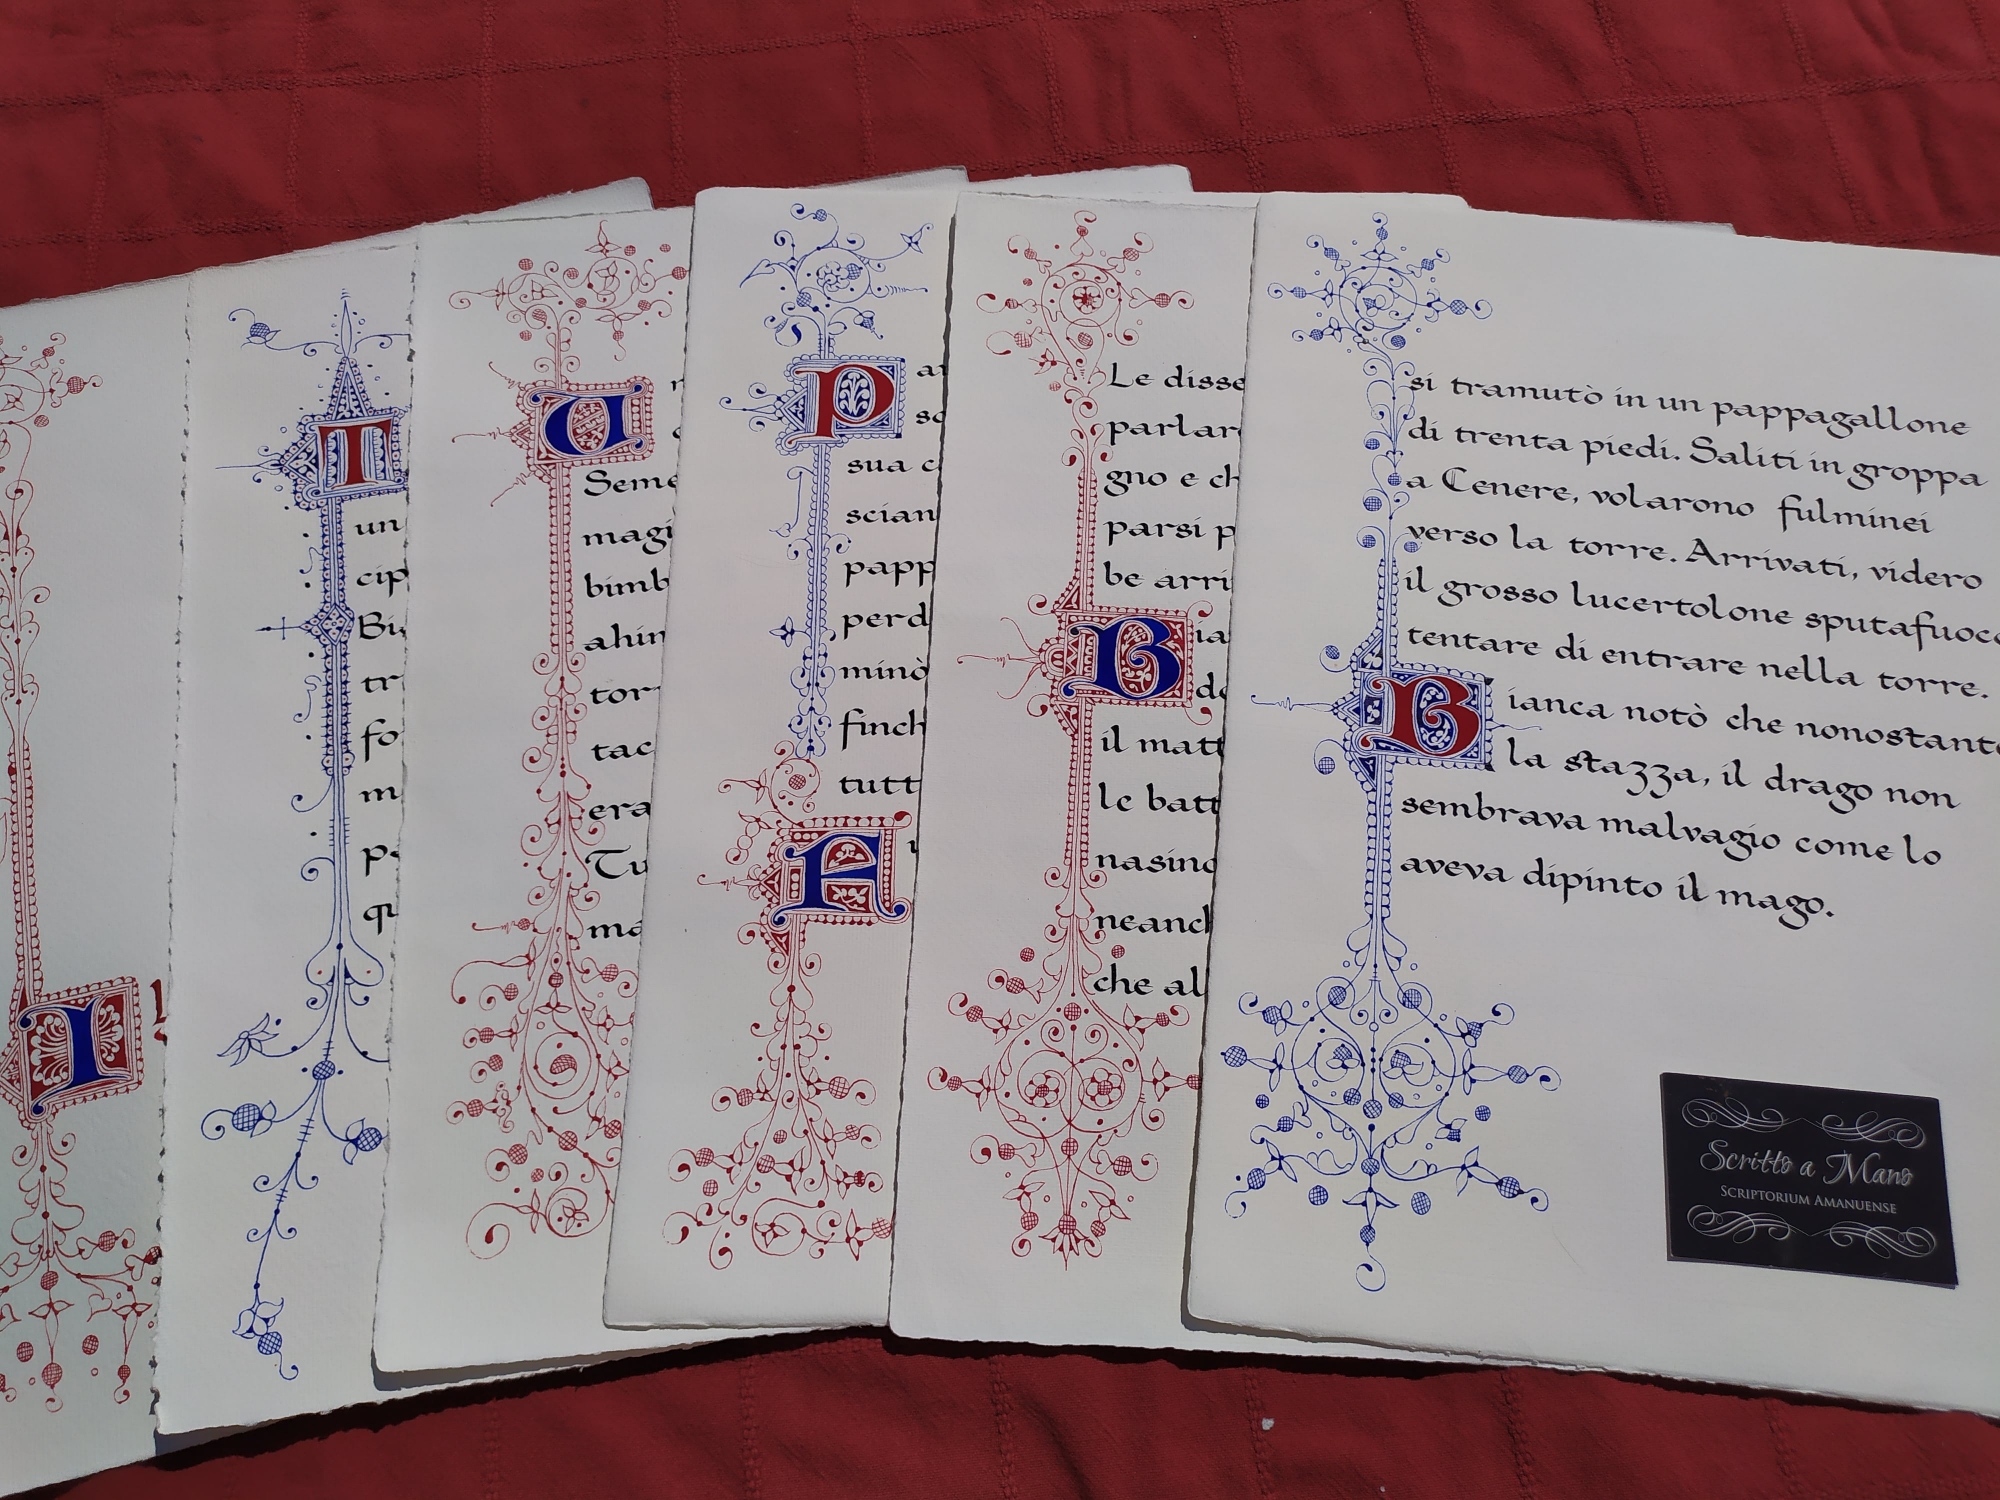 I
T
un
cip
Bi
tr
fo
m
qu
U
Seme
magi
bimb
ahim
tor
tac
era
Tu
ma
P
a
so
sua c
scian
papp
perd
minò
finch
tutt
A
Le disse
parlar
gno e ch
parsi p
be arri
Bia
de
il matt
le batt
nasino
neanch
che al
si tramutò in un pappagallone
di trenta piedi. Saliti in groppa
a Cenere, volarono fulminei
verso la torre. Arrivati, videro
il grosso lucertolone sputafuoco
tentare di entrare nella torre.
Bianca notò che nonostante
la stazza, il drago non
sembrava malvagio come lo
aveva dipinto il mago.
Scritto a Mano
SCRIPTORIUM AMANUENSE